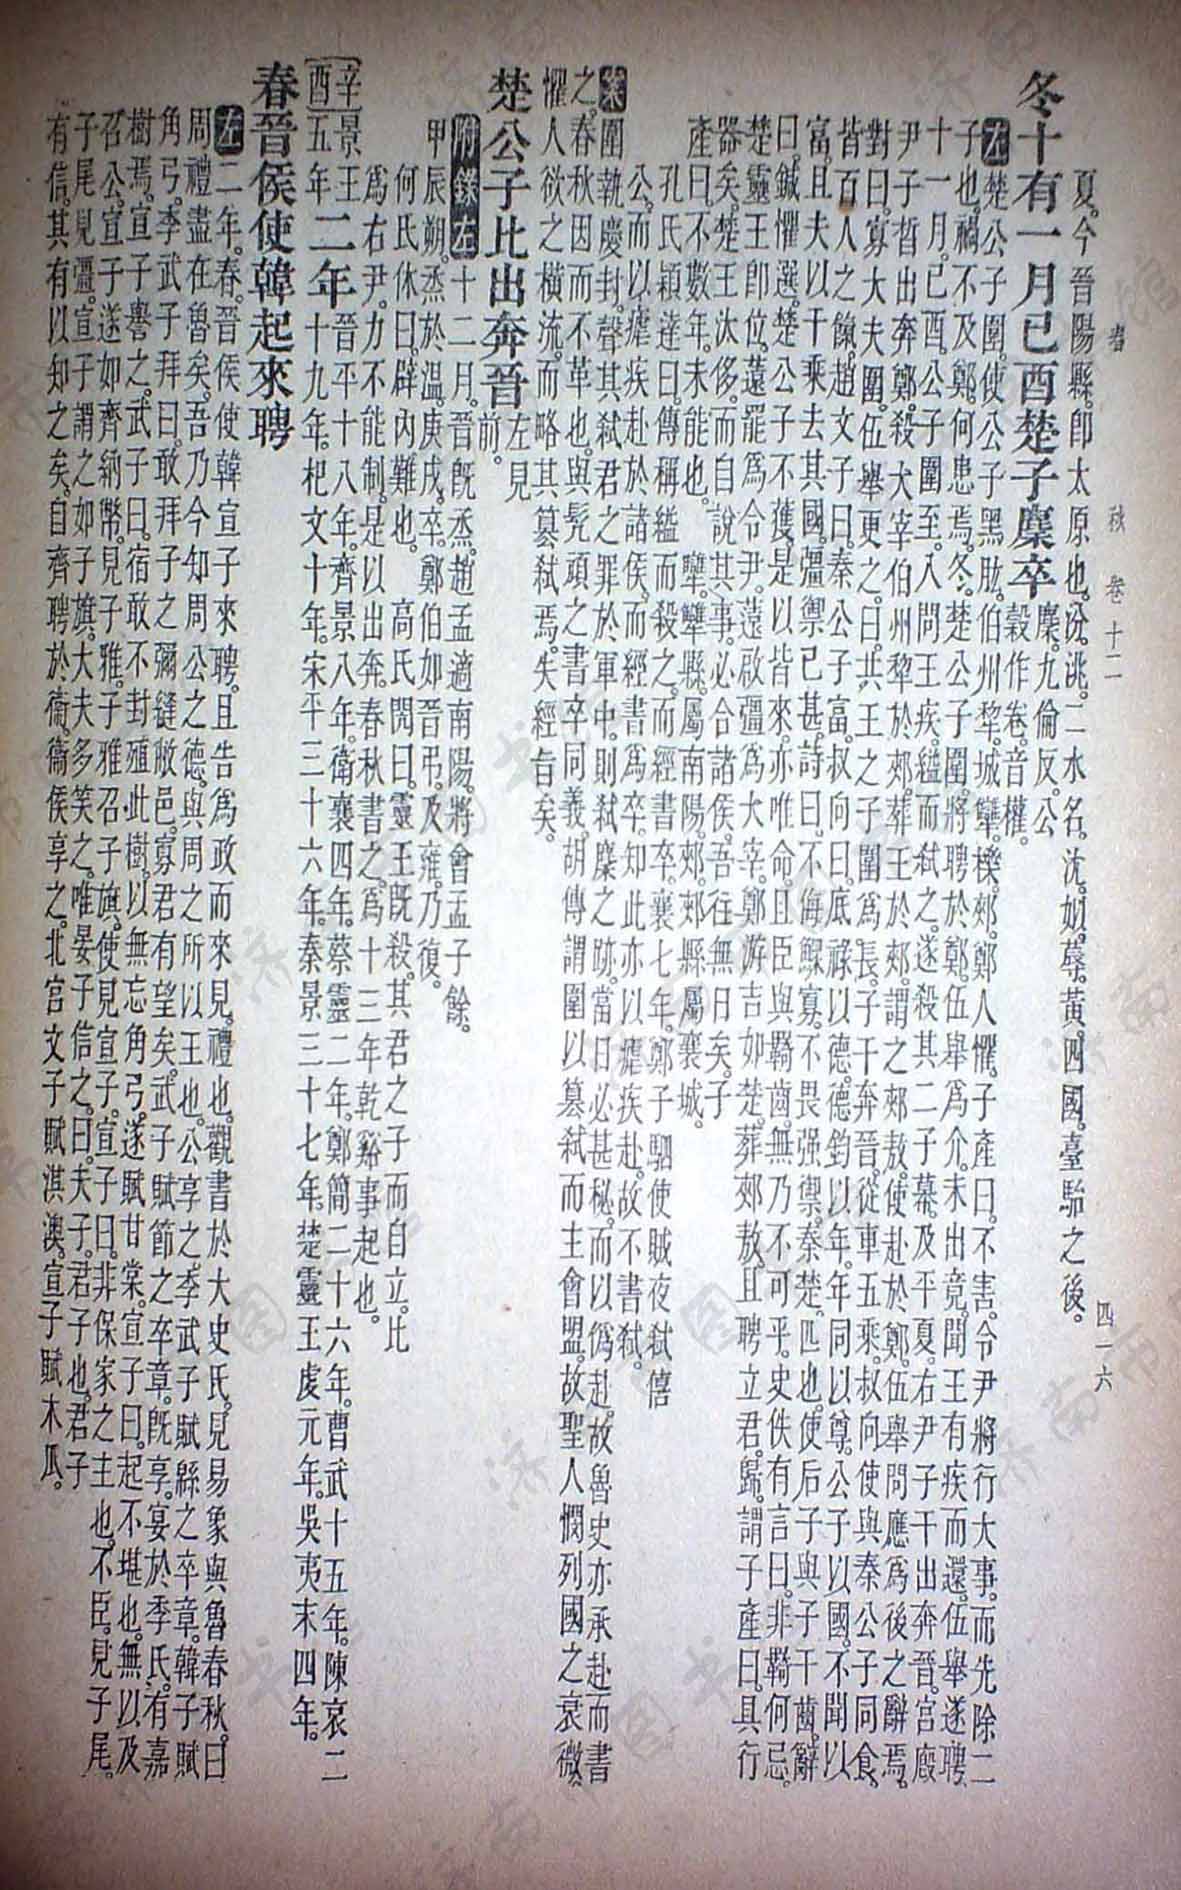 春 秋 卷十二 四一六
夏。今晉陽縣。卽太原也。汾。洮。二水名。沈。姒。蓐。黃。四國。臺駘之後。
冬十有一月己酉楚子麇卒 麇。九倫反。公
穀作卷。音權。
左楚公子圍。使公子黑肱。伯州犂。城犨。櫟。郟。鄭人懼。子產曰。不害。令尹將行大事。而先除二
子也。禍不及鄭。何患焉。冬。楚公子圍。將聘於鄭。伍舉爲介。未出竟。聞王有疾而還。伍舉遂聘。
十一月。己酉。公子圍至。入問王疾。縊而弒之。遂殺其二子幕。及平夏。右尹子干出奔晉。宮廄
尹子晳出奔鄭。殺大宰伯州犂於郟。葬王於郟。謂之郟敖。使赴於鄭。伍舉問應爲後之辭焉。
對曰。寡大夫圍。伍舉更之。曰。共王之子圍爲長。子干奔晉。從車五乘。叔向使與秦公子同食。
皆百人之餼。趙文子曰。秦公子富。叔向曰。底祿以德。德鈞以年。年同以尊。公子以國。不聞以
富。且夫以千乘去其國。彊禦已甚。詩曰。不侮鰥寡。不畏强禦。秦楚。匹也。使后子與子干齒。辭
曰。鍼懼選。楚公子不獲。是以皆來。亦唯命。且臣與羇齒。無乃不可乎。史佚有言曰。非羇何忌。
楚靈王卽位。薳罷爲令尹。薳啟彊爲大宰。鄭游吉如楚。葬郟敖。且聘立君。歸。謂子產曰。具行
器矣。楚王汰侈。而自說其事。必合諸侯。吾往無日矣。子
產曰。不數年。未能也。 犫。犫縣。屬南陽。郟。郟縣。屬襄城。
孔氏穎達曰。傳稱縊而殺之。而經書卒。襄七年。鄭子駟使賊夜弒僖
公。而以瘧疾赴於諸侯。而經書爲卒。知此亦以瘧疾赴。故不書弒。
案圍執慶封。聲其弒君之罪於軍中。則弒麇之跡。當日必甚秘。而以僞赴。故魯史亦承赴而書
之。春秋因而不革也。與髠頑之書卒同義。胡傳謂圍以篡弒而主會盟。故聖人憫列國之衰微。
懼人欲之橫流。而略其篡弒焉。失經旨矣。
楚公子比出奔晉 左見
前。
附錄左十二月。晉旣烝。趙孟適南陽。將會孟子餘。
甲辰朔。烝於溫。庚戌。卒。鄭伯如晉弔。及雍。乃復。
何氏休曰。辟內難也。 高氏閌曰。靈王旣殺。其君之子而自立。比
爲右尹。力不能制。是以出奔。春秋書之。爲十三年乾谿事起也。
〔辛酉〕景王五年 二年 晉平十八年。齊景八年。衛襄四年。蔡靈二年。鄭簡二十六年。曹武十五年。陳哀二
十九年。杞文十年。宋平三十六年。秦景三十七年。楚靈王虔元年。吳夷末四年。
春晉侯使韓起來聘
左二年。春。晉侯使韓宣子來聘。且告爲政而來見。禮也。觀書於大史氏。見易象與魯春秋。曰
周禮盡在魯矣。吾乃今知周公之德。與周之所以王也。公享之。季武子賦緜之卒章。韓子賦
角弓。季武子拜曰。敢拜子之彌縫敝邑。寡君有望矣。武子賦節之卒章。旣享。宴於季氏。有嘉
樹焉。宣子譽之。武子曰。宿敢不封殖此樹。以無忘角弓。遂賦甘棠。宣子曰。起不堪也。無以及
召公。宣子遂如齊納幣。見子雅。子雅召子旗。使見宣子。宣子曰。非保家之主也。不臣。見子尾。
子尾見彊。宣子謂之如子旗。大夫多笑之。唯晏子信之。曰。夫子。君子也。君子
有信。其有以知之矣。自齊聘於衞。衞侯享之。北宮文子賦淇澳。宣子賦木瓜。